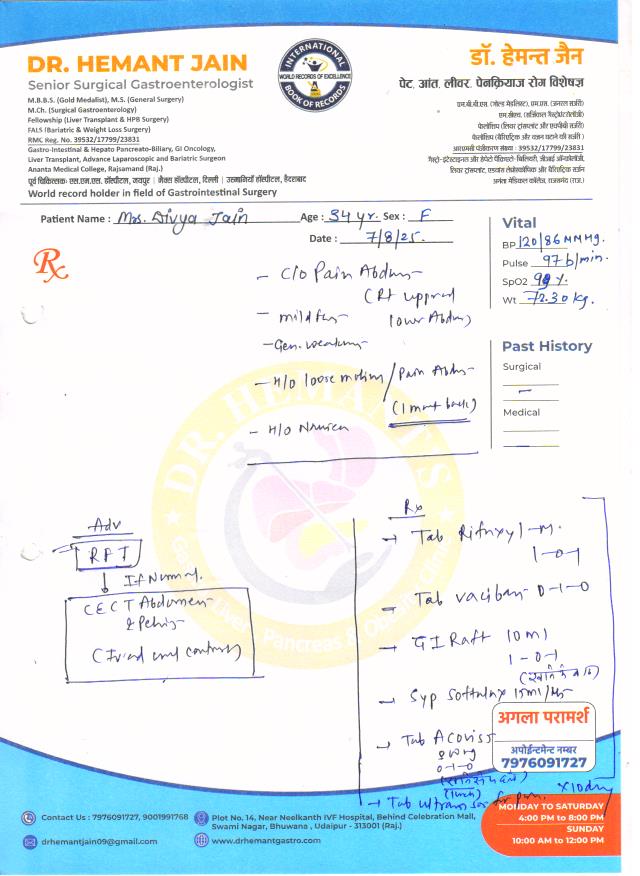 DR. HEMANT JAIN
Senior Surgical Gastroenterologist
M.B.B.S. (Gold Medalist), M.S. (General Surgery)
M.Ch. (Surgical Gastroenterology)
Fellowship (Liver Transplant & HPB Surgery)
FALS (Bariatric & Weight Loss Surgery)
RMC Reg. No. 39532/17799/23831
Gastro-Intestinal & Hepato Pancreato-Biliary, GI Oncology,
Liver Transplant, Advance Laparoscopic and Bariatric Surgeon
Ananta Medical College, Rajsamand (Raj.)
पूर्व चिकित्सक: एस.एम.एस. हॉस्पीटल, जयपुर | मैक्स हॉस्पीटल, दिल्ली | उस्मानियाँ हॉस्पीटल, हैदराबाद
World record holder in field of Gastrointestinal Surgery
INTERNATIONAL
WORLD RECORDS OF EXCELLENCE
BOOK OF RECORDS
डॉ. हेमन्त जैन
पेट, आंत, लीवर, पेनक्रियाज रोग विशेषज्ञ
एम.बी.बी.एस. (गोल्ड मेडलिस्ट), एम.एस. (जनरल सर्जरी)
एम.सीएच. (सर्जिकल गैस्ट्रोएंटेरोलॉजी)
फेलोशिप (लिवर ट्रांसप्लांट और एचपीबी सर्जरी)
फेलोशिप (बैरिएट्रिक और वजन घटाने की सर्जरी)
आरएमसी पंजीकरण संख्या : 39532/17799/23831
लिवर ट्रांसप्लांट, एडवांस लेप्रोस्कोपिक और बैरिएट्रिक सर्जन
अनंता मेडिकल कॉलेज, राजसमंद (राज.)
Patient Name : Mrs. Divya Jain Age : 34 yr. Sex : F
Date : 7/8/25.
Vital
BP 120/86 MMHg.
Pulse 97 b/min.
SpO2 99 %.
Wt 72.30 kg.
Rx
- C/o Pain Abdmn
(Rt upper
- mild
lower Abdmn)
- Gen. weakness
- H/o loose motion / Pain Abdmn
(1 month back)
- H/o Nausea
Past History
Surgical
-
Medical
DR. HEMANT'S
Gastro Liver Pancreas & Obesity Clinic
Adv
RFT
If Normal.
CECT Abdomen
& Pelvis
(Iv and oral contrast)
Rx
→ Tab Rifaxyl-M.
1-0-1
→ Tab 0-1-0
→ GI Raft 10ml
1-0-1
→ Syp Softulax 15ml/HS
→ Tab
0-1-0
→ Tab for pain. x10day
अगला परामर्श
अपोईन्टमेन्ट नम्बर
7976091727
MONDAY TO SATURDAY
4:00 PM to 8:00 PM
SUNDAY
10:00 AM to 12:00 PM
Contact Us : 7976091727, 9001991768
drhemantjain09@gmail.com
Plot No. 14, Near Neelkanth IVF Hospital, Behind Celebration Mall,
Swami Nagar, Bhuwana, Udaipur - 313001 (Raj.)
www.drhemantgastro.com